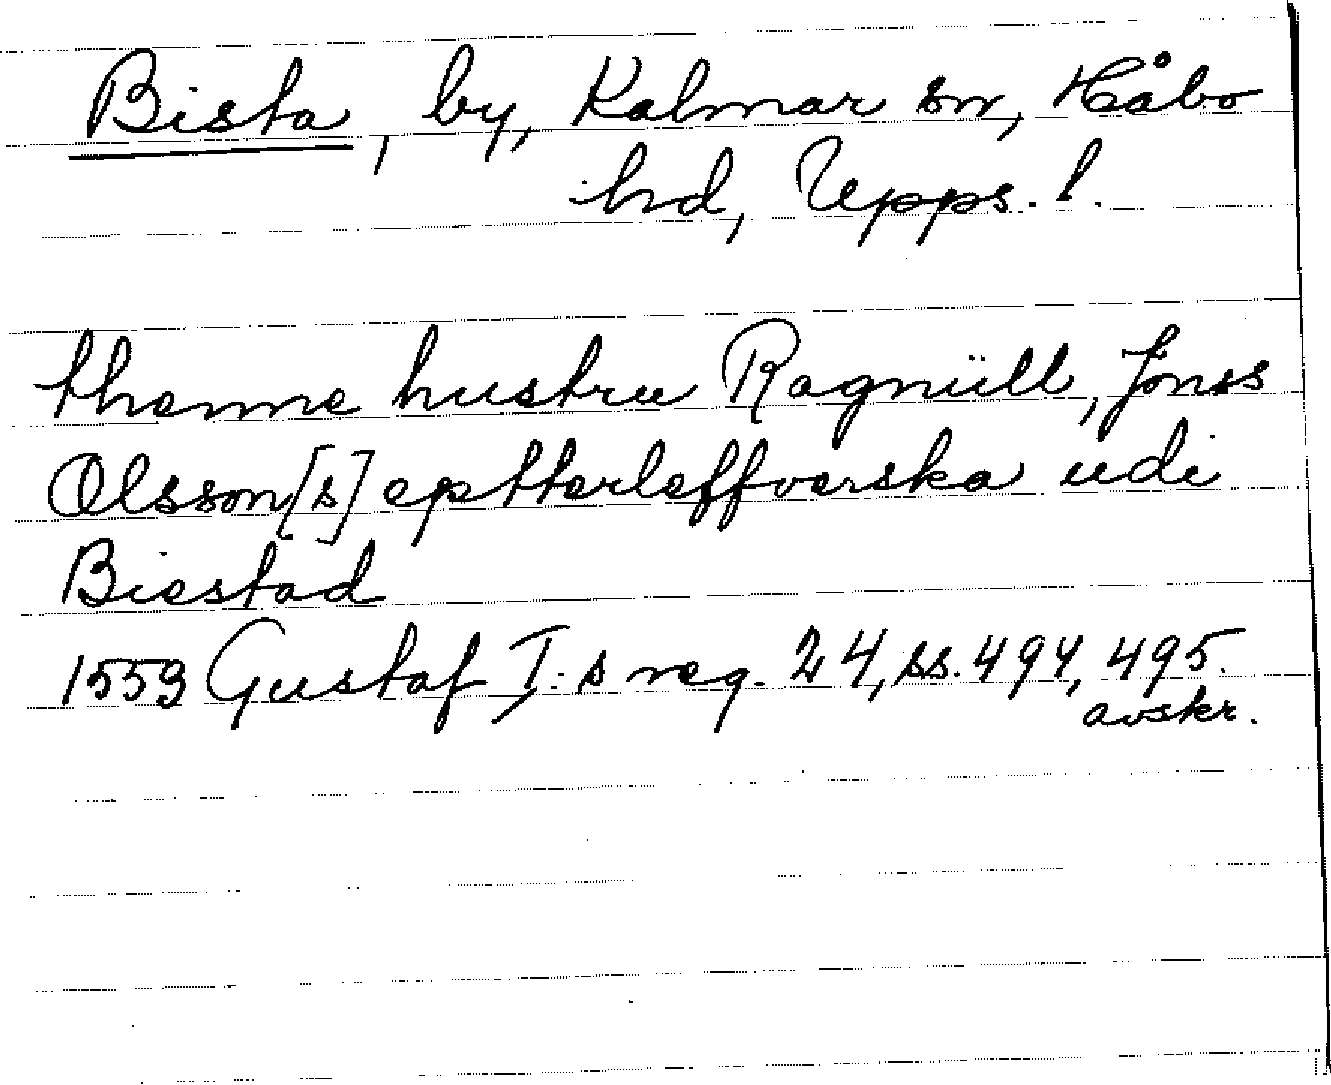 Bista, by, Kalmar sn, Håbo
hd, Upps. l.
thenne hustru Ragnüll, Jönss
Olsson[s] eptterleffverska udi
Biestad
1553 Gustaf I:s reg. 24, ss. 494, 495.
avskr.